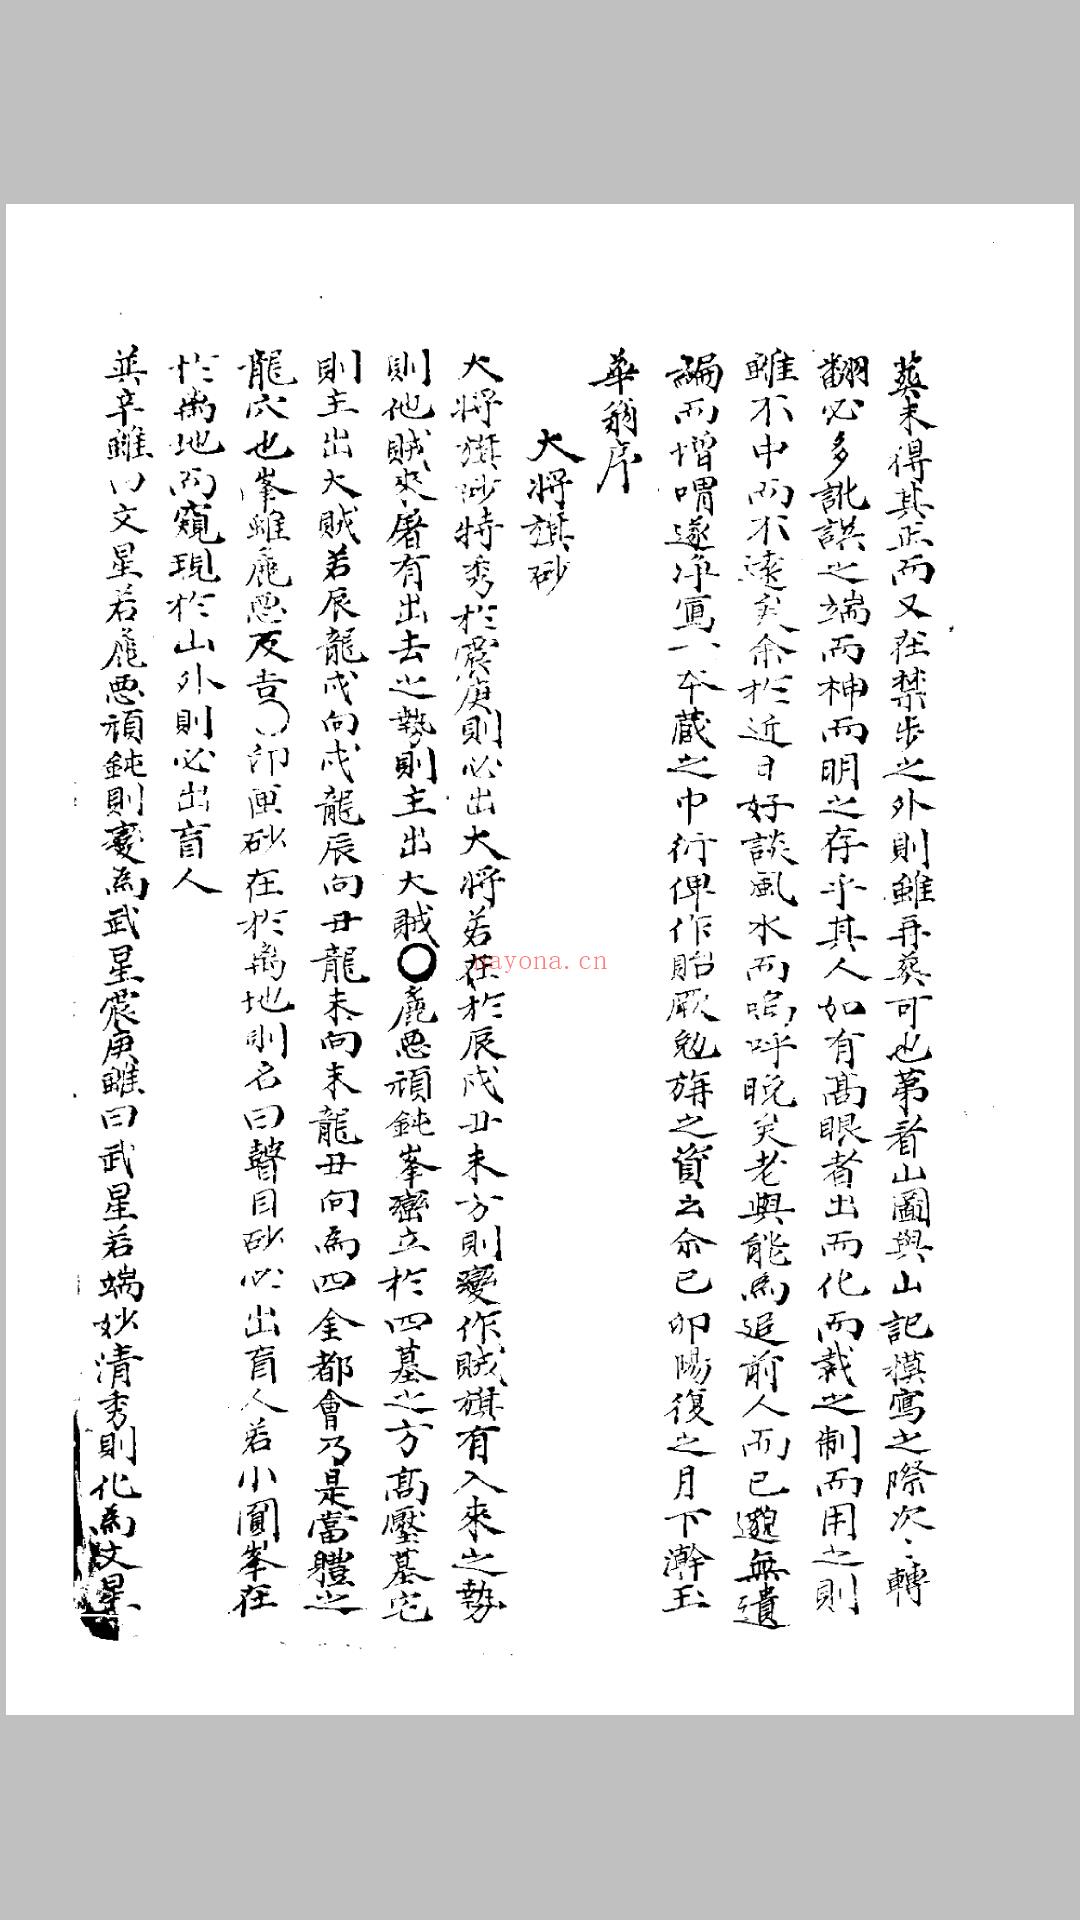 葬未得其正而又在禁步之外則雖再葬可也第看山圖與山記模寫之際次〻轉
翻必多訛誤之端而神而明之存乎其人如有高眼者出而化而裁之制而用之則
雖不中而不遠矣余於近日好談風水而嗚呼晩矣老與能為追前人而已邈無遺
編而憎喟遂净寫一本藏之巾衍俾作貽厥勉旃之資云尒己卯陽復之月下澣玉
華翁序
大將旗砂
大將旗砂特秀於震庚則必出大將若在於辰戌丑未方則變作賊旗有入來之勢
則他賊來屠有出去之勢則主出大賊〇麁悪頑鈍峯巒立於四墓之方高壓墓宅
則主出大賊若辰龍戌向戌龍辰向丑龍未向未龍丑向為四金都會乃是當軆之
龍穴也峯雖麁悪反吉〇印匣砂在於离地則名曰瞽目砂必出盲人若小圓峯在
於离地而窺現於山外則必出盲人
巽辛雖曰文星若麁悪頑鈍則變為武星震庚雖曰武星若端妙清秀則化為文星
nayona.cn